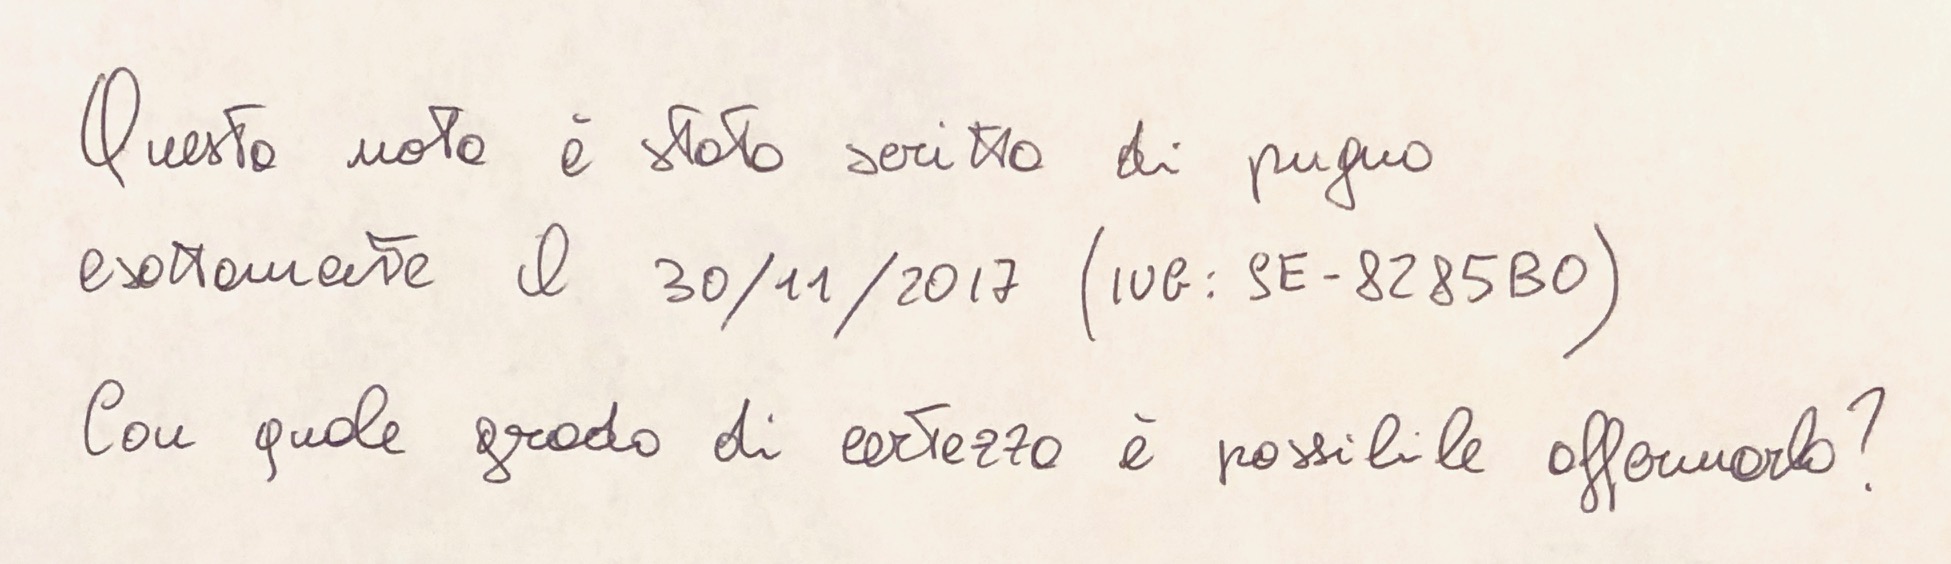 Questa nota è stata scritta di pugno
esattamente il 30/11/2017 (IUG: SE-8285BO)
Con quale grado di certezza è possibile affermarlo?